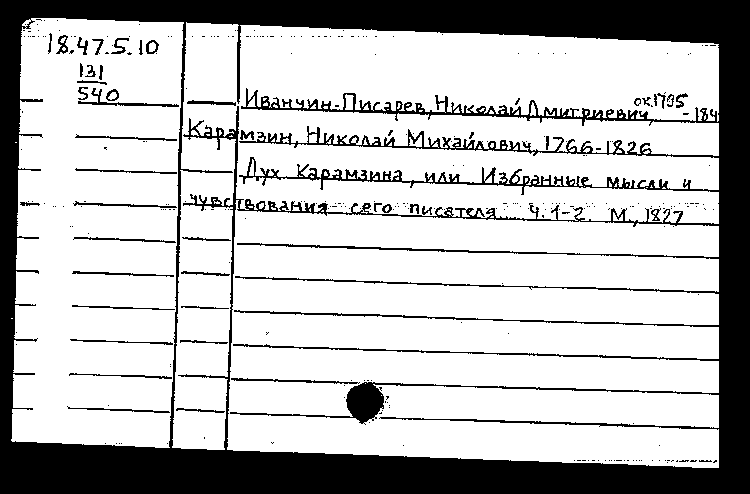 18.47.5.10
131
540
ок.1795
Иванчин-Писарев, Николай Дмитриевич, -184
Карамзин, Николай Михайлович, 1766-1826
Дух Карамзина, или Избранные мысли и
чувствования сего писателя. Ч. 1-2. М., 1827